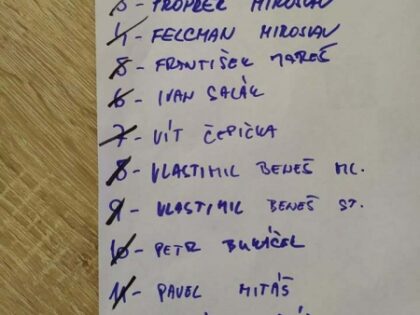 MIROSLAV
4 - FELCMAN MIROSLAV
5 - FRANTIŠEK MAREŠ
6 - IVAN SALÁK
7 - VÍT ČEPIČKA
8 - VLASTIMIL BENEŠ ML.
9 - VLASTIMIL BENEŠ ST.
10 - PETR
11 - PAVEL MITÁŠ